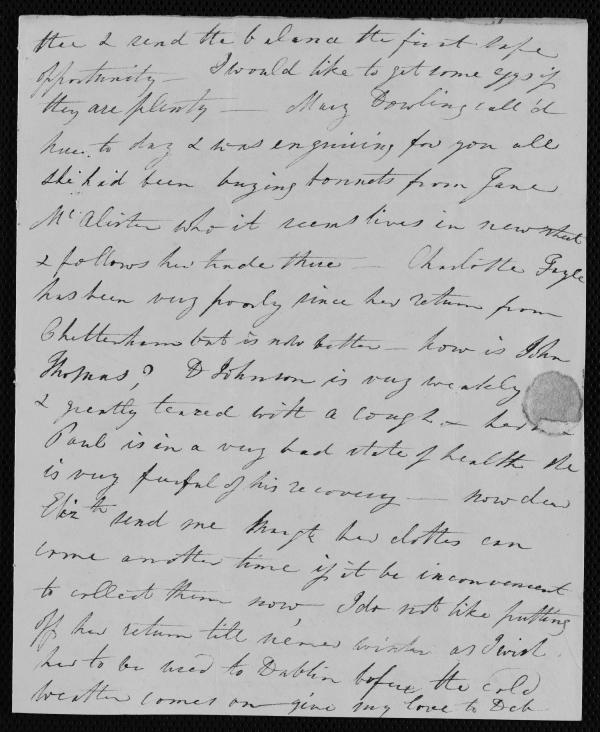 thee & send the balance the first safe
opportunity — I would like to get some eggs if
they are plenty — Mary Dowling call'd
here to day & was enquiring for you all
she had been buying bonnets from Jane
Mc Alister who it seems lives in new street
& follows her trade there — Charlotte Fayle
has been very poorly since her return from
Cheltenham but is now better — how is John
Thomas? D Johnson is very weakly
& greatly teazed with a cough — her
Paul is in a very bad state of health she
is very fearful of his recovery — now dear
Elizth send me Margt her clothes can
come another time if it be inconvenient
to collect them now, I do not like putting
off her return till nearer winter as I wish
her to be used to Dublin before the cold
weather comes on — give my love to Deb